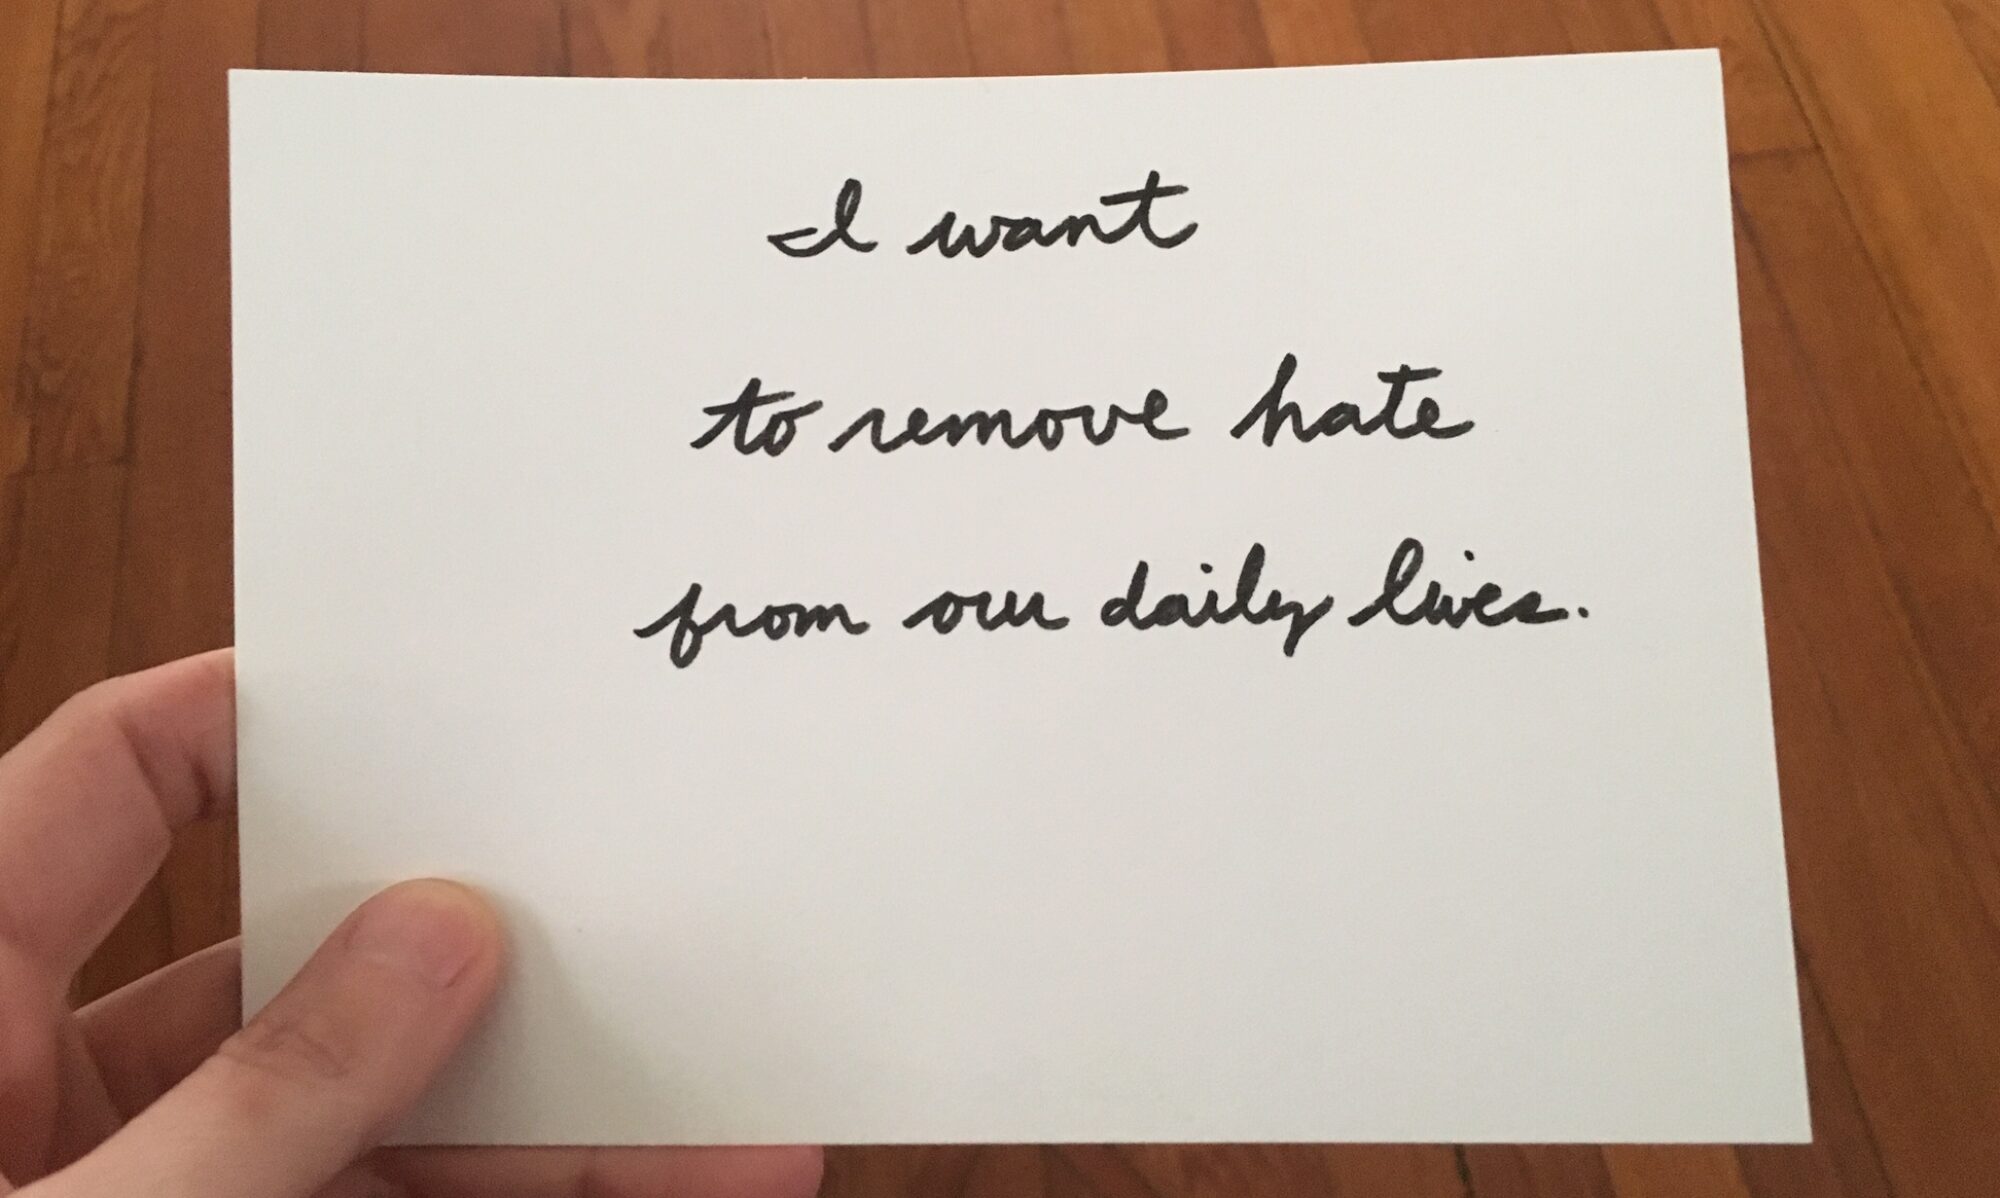 I want
to remove hate
from our daily lives.